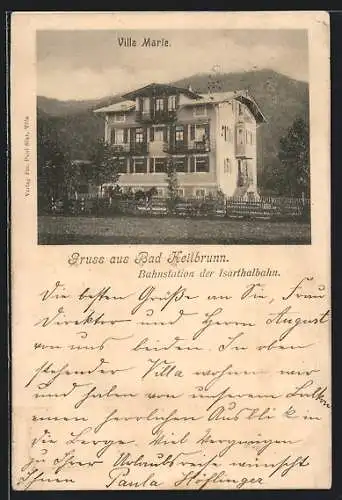 Villa Marie.
Gruss aus Bad Heilbrunn.
Bahnstation der Isarthalbahn.
Die besten Grüße an Sie, Frau
Direktor und Herrn August
von uns beiden. In oben
stehender Villa wohnen wir
und haben von unserem Balkon
einen herrlichen Ausblick in
die Berge. Viel Vergnügen
zu Ihrer Urlaubsreise wünscht
Ihnen Paula Höflinger